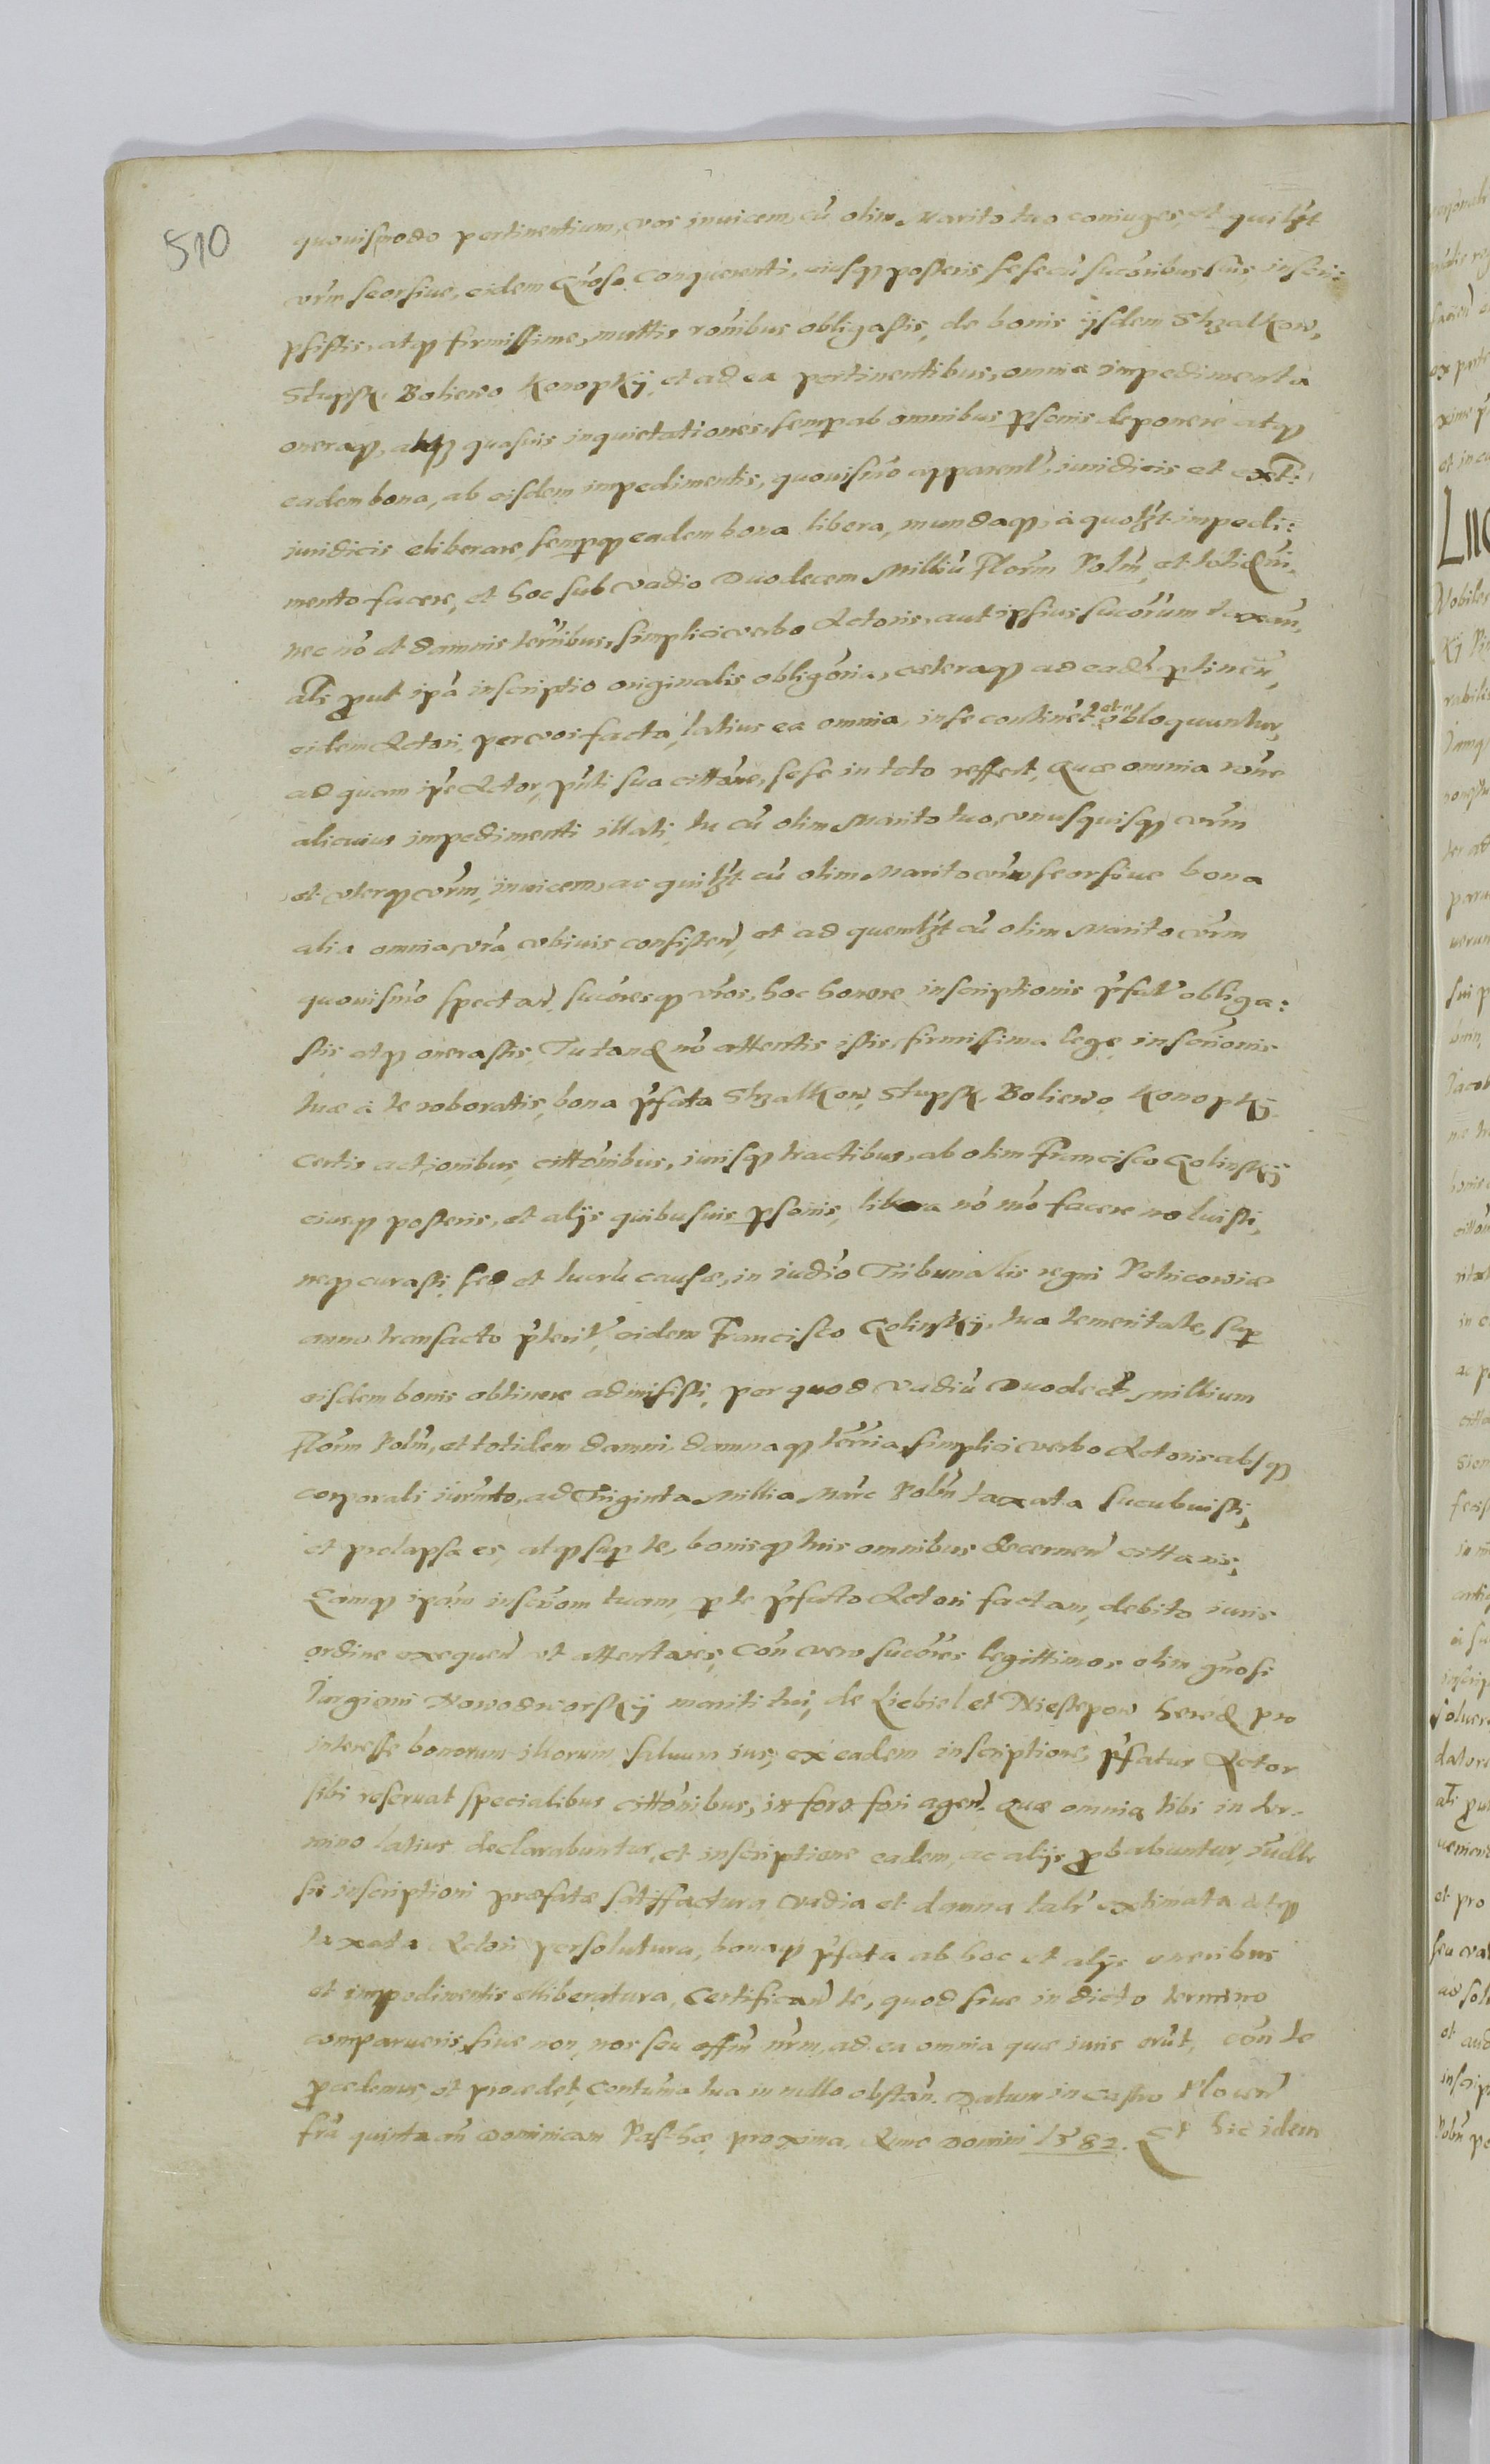 510
quouismodo pertinentium, vos inuicem, cū olim Marito tuo coniuges, et quilꝫt
vrm̄ seorsiue, eidem Gn̄oso Conquerenti, eiusqꝫ posteris, sese cū sucōribus suis, inscri:
psistis, atqꝫ firmissime, multis rōnibus obligastis, de bonis ijsdem Strzalkow,
Stupsk, Boliewo Konopkÿ, et ad ea pertinentibus, omnia impedimenta
oneraqꝫ, atqꝫ quasuis inquietationes, semp ab omnibus psonis deponere atqꝫ
eadem bona, ab eisdem impedimentis, quouismō apparentī, iuridicis et ext:
iuridicis eliberare, sempqꝫ eadem bona libera, mundaqꝫ, à quolꝫt impedi:
mento facere, et hoc sub vadio Duodecem Milliū Florm̄ Polm̄, et totidm̄,
nec nō et damnis terr̄ibus, simplici verbo Actoris, aut ipsius sucōrum taxan̄,
ati put ipā inscriptio originalis obligōria, coeteraqꝫ ad eadē ptinen̄,
eidem Actori, per vos facta, latius ea omnia, in se continet et obloquuntur,
ad quam ipē Actor, pn̄ti sua cittōne, sese in toto reffert, Quae omnia rōne
alicuius impedimenti illati, tu cū olim Marito tuo, vnusquisqꝫ vrm̄
et vterqꝫ vrm̄, inuicem, ac quilꝫt cū olim Marito vrm̄ seorsiue bona
alia omnia vrā vbiuis consisten̄, et ad quemlꝫt cū olim Marito vrm̄
quouismō spectan̄, sucōresqꝫ vros, hoc honere inscriptionis pfat̄ obliga:
stis atqꝫ onerastis, Tu tandē nō attentis istis, firmissima lege inscriōnis
tuae à te roboratis, bona pfata Strzalkow, Stupsk, Boliewo, Konopkÿ
certis actionibus, cittōnibus, iurisqꝫ tractibus, ab olim Francisco Golinskÿ
eiusqꝫ posteris, et alijs quibusuis psonis, libera nō mō facere noluisti,
neqꝫ curasti, sed et lucrū causae, in iudīo Tribunalis regni Petricowiae
anno transacto pterit̄, eidem Francisco Golinskÿ, tua temeritate, sup
eisdem bonis obtinere admisisti, per quod vadiū Duodecē Millium
Florm̄ Polm̄, et totidem damni, damnaqꝫ terr̄ia, simplici verbo Actoris absqꝫ
corporali iurm̄to, ad Triginta Millia Marc Polm̄ taxata sucubuisti,
et prolapsa es, atqꝫ sup te, bonisqꝫ tuis omnibus decernen̄ cittaris,
Eamqꝫ ipām inscrōm tuam, p te pfato Actori factam, debito iuris
ordine exequen̄ et attentares, Con̄ vero sucōres legittimos olim gn̄osi
Jurgiewi Nowodworskÿ mariti tui, de Liebiel et Niestepow hered pro
interesse bonorum illorum, saluum ius, ex eadem inscriptione, pfatus Actor
sibi reseruat specialibus cittōnibus, in foro fori agen̄. Quae omnia tibi in ter-
mino latius declarabuntur, et inscriptione eadem, ac alijs pbabuntur,
sis inscriptioni praefatae satisfactura, vadia et damna talr̄ extimata atqꝫ
taxata Actori persolutura, bonaqꝫ pfata ab hoc et alijs oneribus
et impedimentis elliberatura, Certifican̄ te, quod siue in dicto termino
comparueris, siue non, nos seu offm̄ nrm̄, ad ea omnia quae iuris erūt, con̄ te
pcedemus et procedet, Contūma tua in nullo obstan̄. Datum in Castro Plocen̄
frā quinta an̄ Dominicam Paschae proxima, Anno Domini 1582. Et hic idem